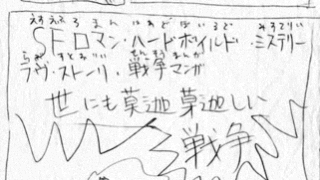 えすえふ ろ まん はあどぼいるど みすてりい
SFロマン・ハードボイルド・ミステリー
らぶ すとおりい せんそうまんが
ラヴ・ストーリィ・戦争マンガ
世にも莫迦莫迦しい
戦争